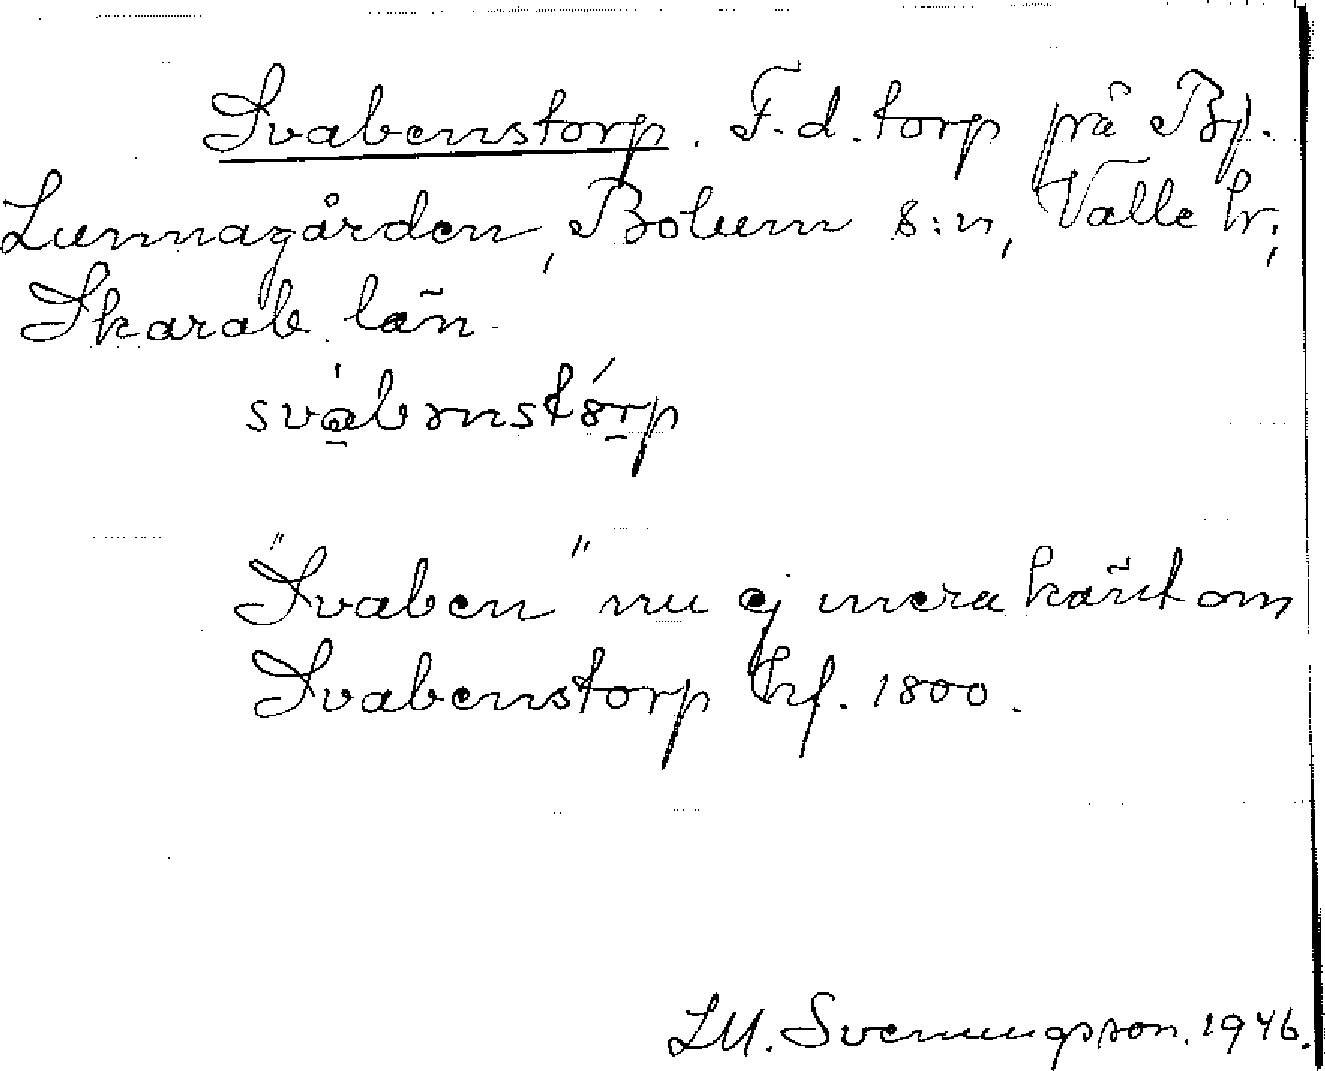 Svabenstorp. F.d. torp på By.
Lunnagården, Bolum s:n, Valle hr,
Skarab. län.
"Svaben" nu ej mera känt om
Svabenstorp kf. 1800.
LM. Svenungsson. 1946.